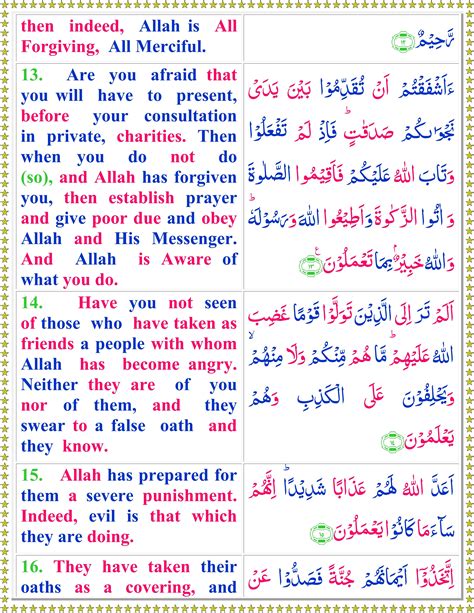 then indeed, Allah is All
Forgiving, All Merciful.
رَّحِيْمٌ ۝۱۲
13. Are you afraid that
you will have to present,
before your consultation
in private, charities. Then
when you do not do
(so), and Allah has forgiven
you, then establish prayer
and give poor due and obey
Allah and His Messenger.
And Allah is Aware of
what you do.
ءَاَشْفَقْتُمْ اَنْ تُقَدِّمُوْا بَيْنَ يَدَىْ
نَجْوٰىكُمْ صَدَقٰتٍ ؕ فَاِذْ لَمْ تَفْعَلُوْا
وَتَابَ اللّٰهُ عَلَيْكُمْ فَاَقِيْمُوا الصَّلٰوةَ
وَ اٰتُوا الزَّكٰوةَ وَاَطِيْعُوا اللّٰهَ وَرَسُوْلَهٗ ؕ
وَاللّٰهُ خَبِيْرٌۢ بِمَا تَعْمَلُوْنَ ۝۱۳
14. Have you not seen
of those who have taken as
friends a people with whom
Allah has become angry.
Neither they are of you
nor of them, and they
swear to a false oath and
they know.
اَلَمْ تَرَ اِلَى الَّذِيْنَ تَوَلَّوْا قَوْمًا غَضِبَ
اللّٰهُ عَلَيْهِمْ ؕ مَّا هُمْ مِّنْكُمْ وَلَا مِنْهُمْ ۙ
وَيَحْلِفُوْنَ عَلَى الْكَذِبِ وَهُمْ
يَعْلَمُوْنَ ۝۱۴
15. Allah has prepared for
them a severe punishment.
Indeed, evil is that which
they are doing.
اَعَدَّ اللّٰهُ لَهُمْ عَذَابًا شَدِيْدًا ؕ اِنَّهُمْ
سَآءَ مَا كَانُوْا يَعْمَلُوْنَ ۝۱۵
16. They have taken their
oaths as a covering, and
اِتَّخَذُوْۤا اَيْمَانَهُمْ جُنَّةً فَصَدُّوْا عَنْ